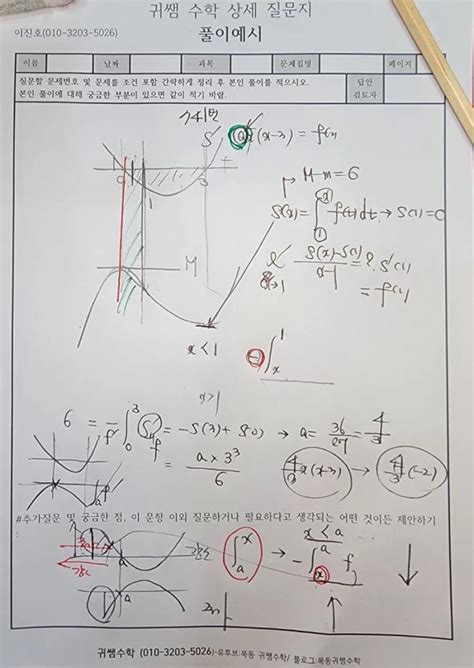 귀쌤 수학 상세 질문지
이진호(010-3203-5026)
풀이예시
이름 날짜 과목 문제집명 페이지
질문할 문제번호 및 문제를 조건 포함 간략하게 정리 후 본인 풀이를 적으시오.
본인 풀이에 대해 궁금한 부분이 있으면 같이 적기 바람.
답안
검토자
(x-3) = f(x)
M-m=6
S(x)= ∫ f(t)dt → S(1)=0
S(x)-S(1) / x-1 = S'(1)
= f(1)
M
x<1
x>1
6 = -∫ = -S(3)+S(0) → a= 36/27 = 4/3
= a×3³/6
4/3 x(x-3) → 4/3(-2)
#추가질문 및 궁금한 점, 이 문항 이외 질문하거나 필요하다고 생각되는 어떤 것이든 제안하기
x<a
귀쌤수학 (010-3203-5026)-유투브:목동 귀쌤수학/ 블로그:목동귀쌤수학